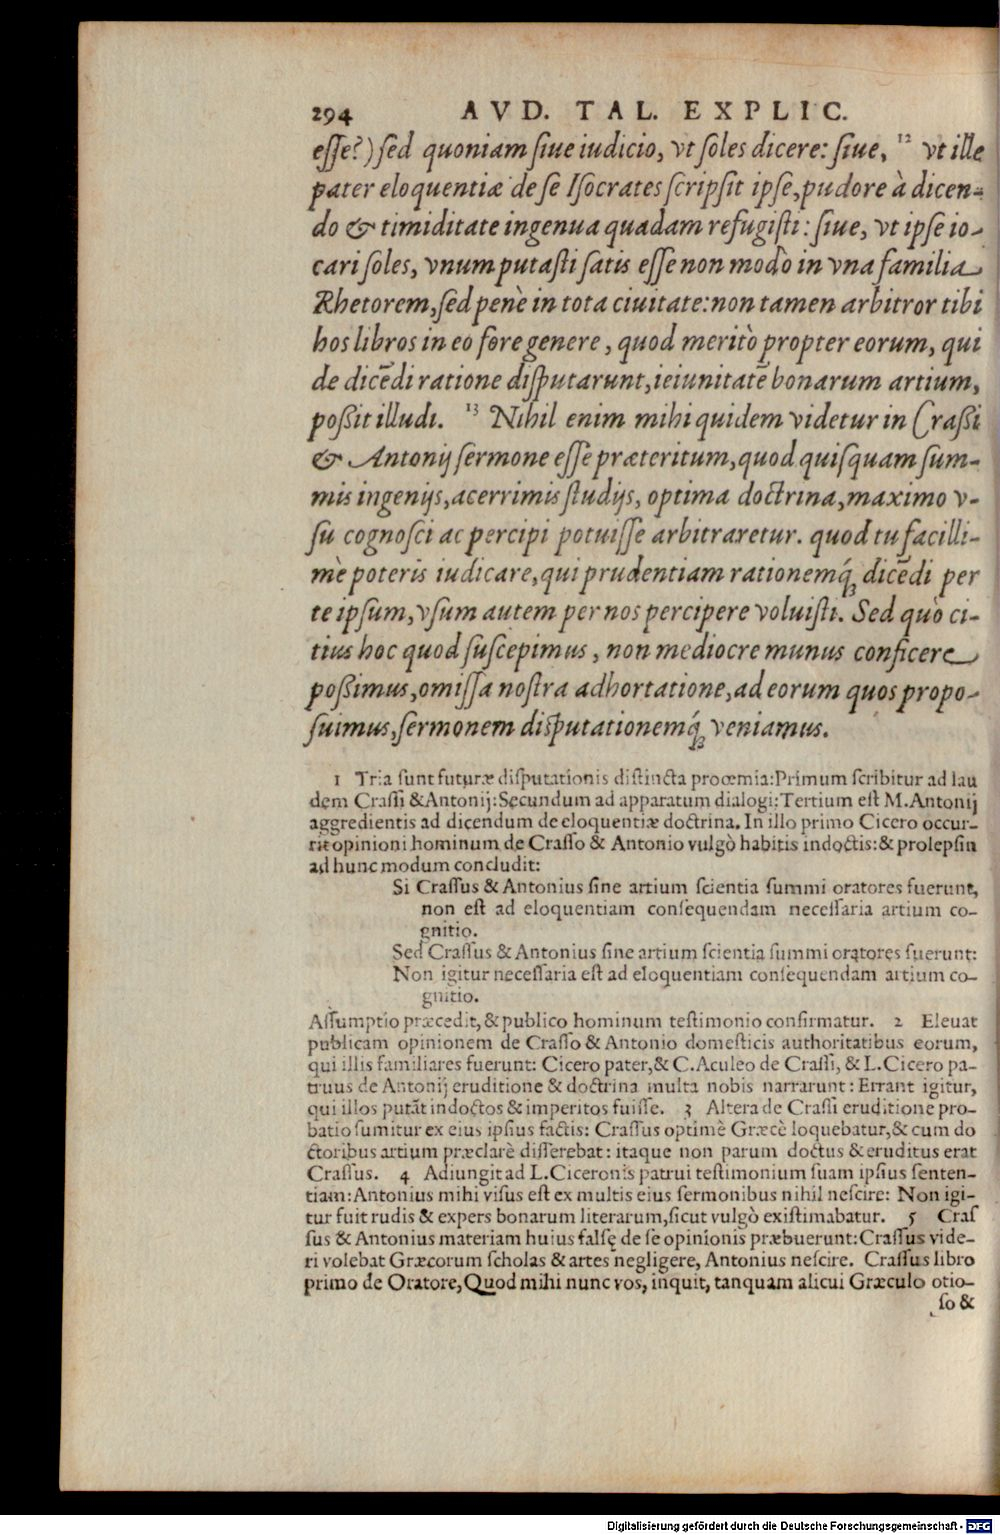 294 AVD. TAL. EXPLIC.
esse?) sed quoniam siue iudicio, vt soles dicere: siue, 12 vt ille
pater eloquentiæ de se Isocrates scripsit ipse, pudore à dicen-
do & timiditate ingenua quadam refugisti: siue, vt ipse io-
cari soles, vnum putasti satis esse non modò in vna familia
Rhetorem, sed penè in tota ciuitate: non tamen arbitror tibi
hos libros in eo fore genere, quod meritò propter eorum, qui
de dicẽdi ratione disputarunt, ieiunitatẽ bonarum artium,
possit illudi. 13 Nihil enim mihi quidem videtur in Crassi
& Antonij sermone esse præteritum, quod quisquam sum-
mis ingenijs, acerrimis studijs, optima doctrina, maximo v-
su cognosci ac percipi potuisse arbitraretur. quod tu facilli-
mè poteris iudicare, qui prudentiam rationemq́; dicẽdi per
te ipsum, vsum autem per nos percipere voluisti. Sed quò ci-
tius hoc quod suscepimus, non mediocre munus conficere
possimus, omissa nostra adhortatione, ad eorum quos propo-
suimus, sermonem disputationemq́; veniamus.
1 Tria sunt futuræ disputationis distincta proœmia: Primum scribitur ad lau
dem Crassi & Antonij: Secundum ad apparatum dialogi: Tertium est M. Antonij
aggredientis ad dicendum de eloquentiæ doctrina. In illo primo Cicero occur-
rit opinioni hominum de Crasso & Antonio vulgò habitis indoctis: & prolepsin
ad hunc modum concludit:
Si Crassus & Antonius sine artium scientia summi oratores fuerunt,
non est ad eloquentiam consequendam necessaria artium co-
gnitio.
Sed Crassus & Antonius sine artium scientia summi oratores fuerunt:
Non igitur necessaria est ad eloquentiam consequendam artium co-
gnitio.
Assumptio præcedit, & publico hominum testimonio confirmatur. 2 Eleuat
publicam opinionem de Crasso & Antonio domesticis authoritatibus eorum,
qui illis familiares fuerunt: Cicero pater, & C. Aculeo de Crassi, & L. Cicero pa-
truus de Antonij eruditione & doctrina multa nobis narrarunt: Errant igitur,
qui illos putãt indoctos & imperitos fuisse. 3 Altera de Crassi eruditione pro-
batio sumitur ex eius ipsius factis: Crassus optimè Græcè loquebatur, & cum do
ctoribus artium præclarè disserebat: itaque non parum doctus & eruditus erat
Crassus. 4 Adiungit ad L. Ciceronis patrui testimonium suam ipsius senten-
tiam: Antonius mihi visus est ex multis eius sermonibus nihil nescire: Non igi-
tur fuit rudis & expers bonarum literarum, sicut vulgò existimabatur. 5 Cras
sus & Antonius materiam huius falsę de se opinionis præbuerunt: Crassus vide-
ri volebat Græcorum scholas & artes negligere, Antonius nescire. Crassus libro
primo de Oratore, Quod mihi nunc vos, inquit, tanquam alicui Græculo otio-
so &
Digitalisierung gefördert durch die Deutsche Forschungsgemeinschaft - DFG